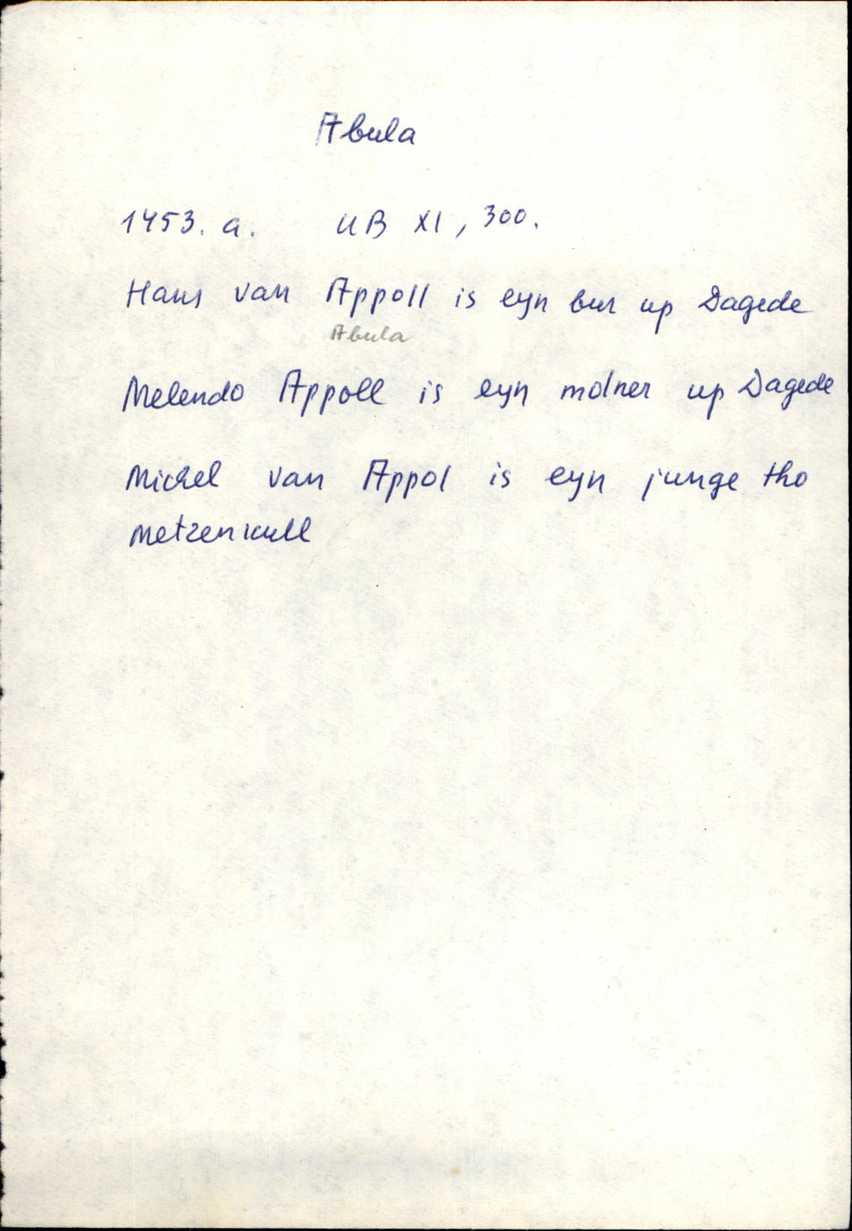 Abula
1453. a. UB XI, 300.
Hans van Appoll is eyn bur up Dagede
Abula
Melendo Appoll is eyn molner up Dagede
Michel van Appol is eyn junge tho
Metzenkull